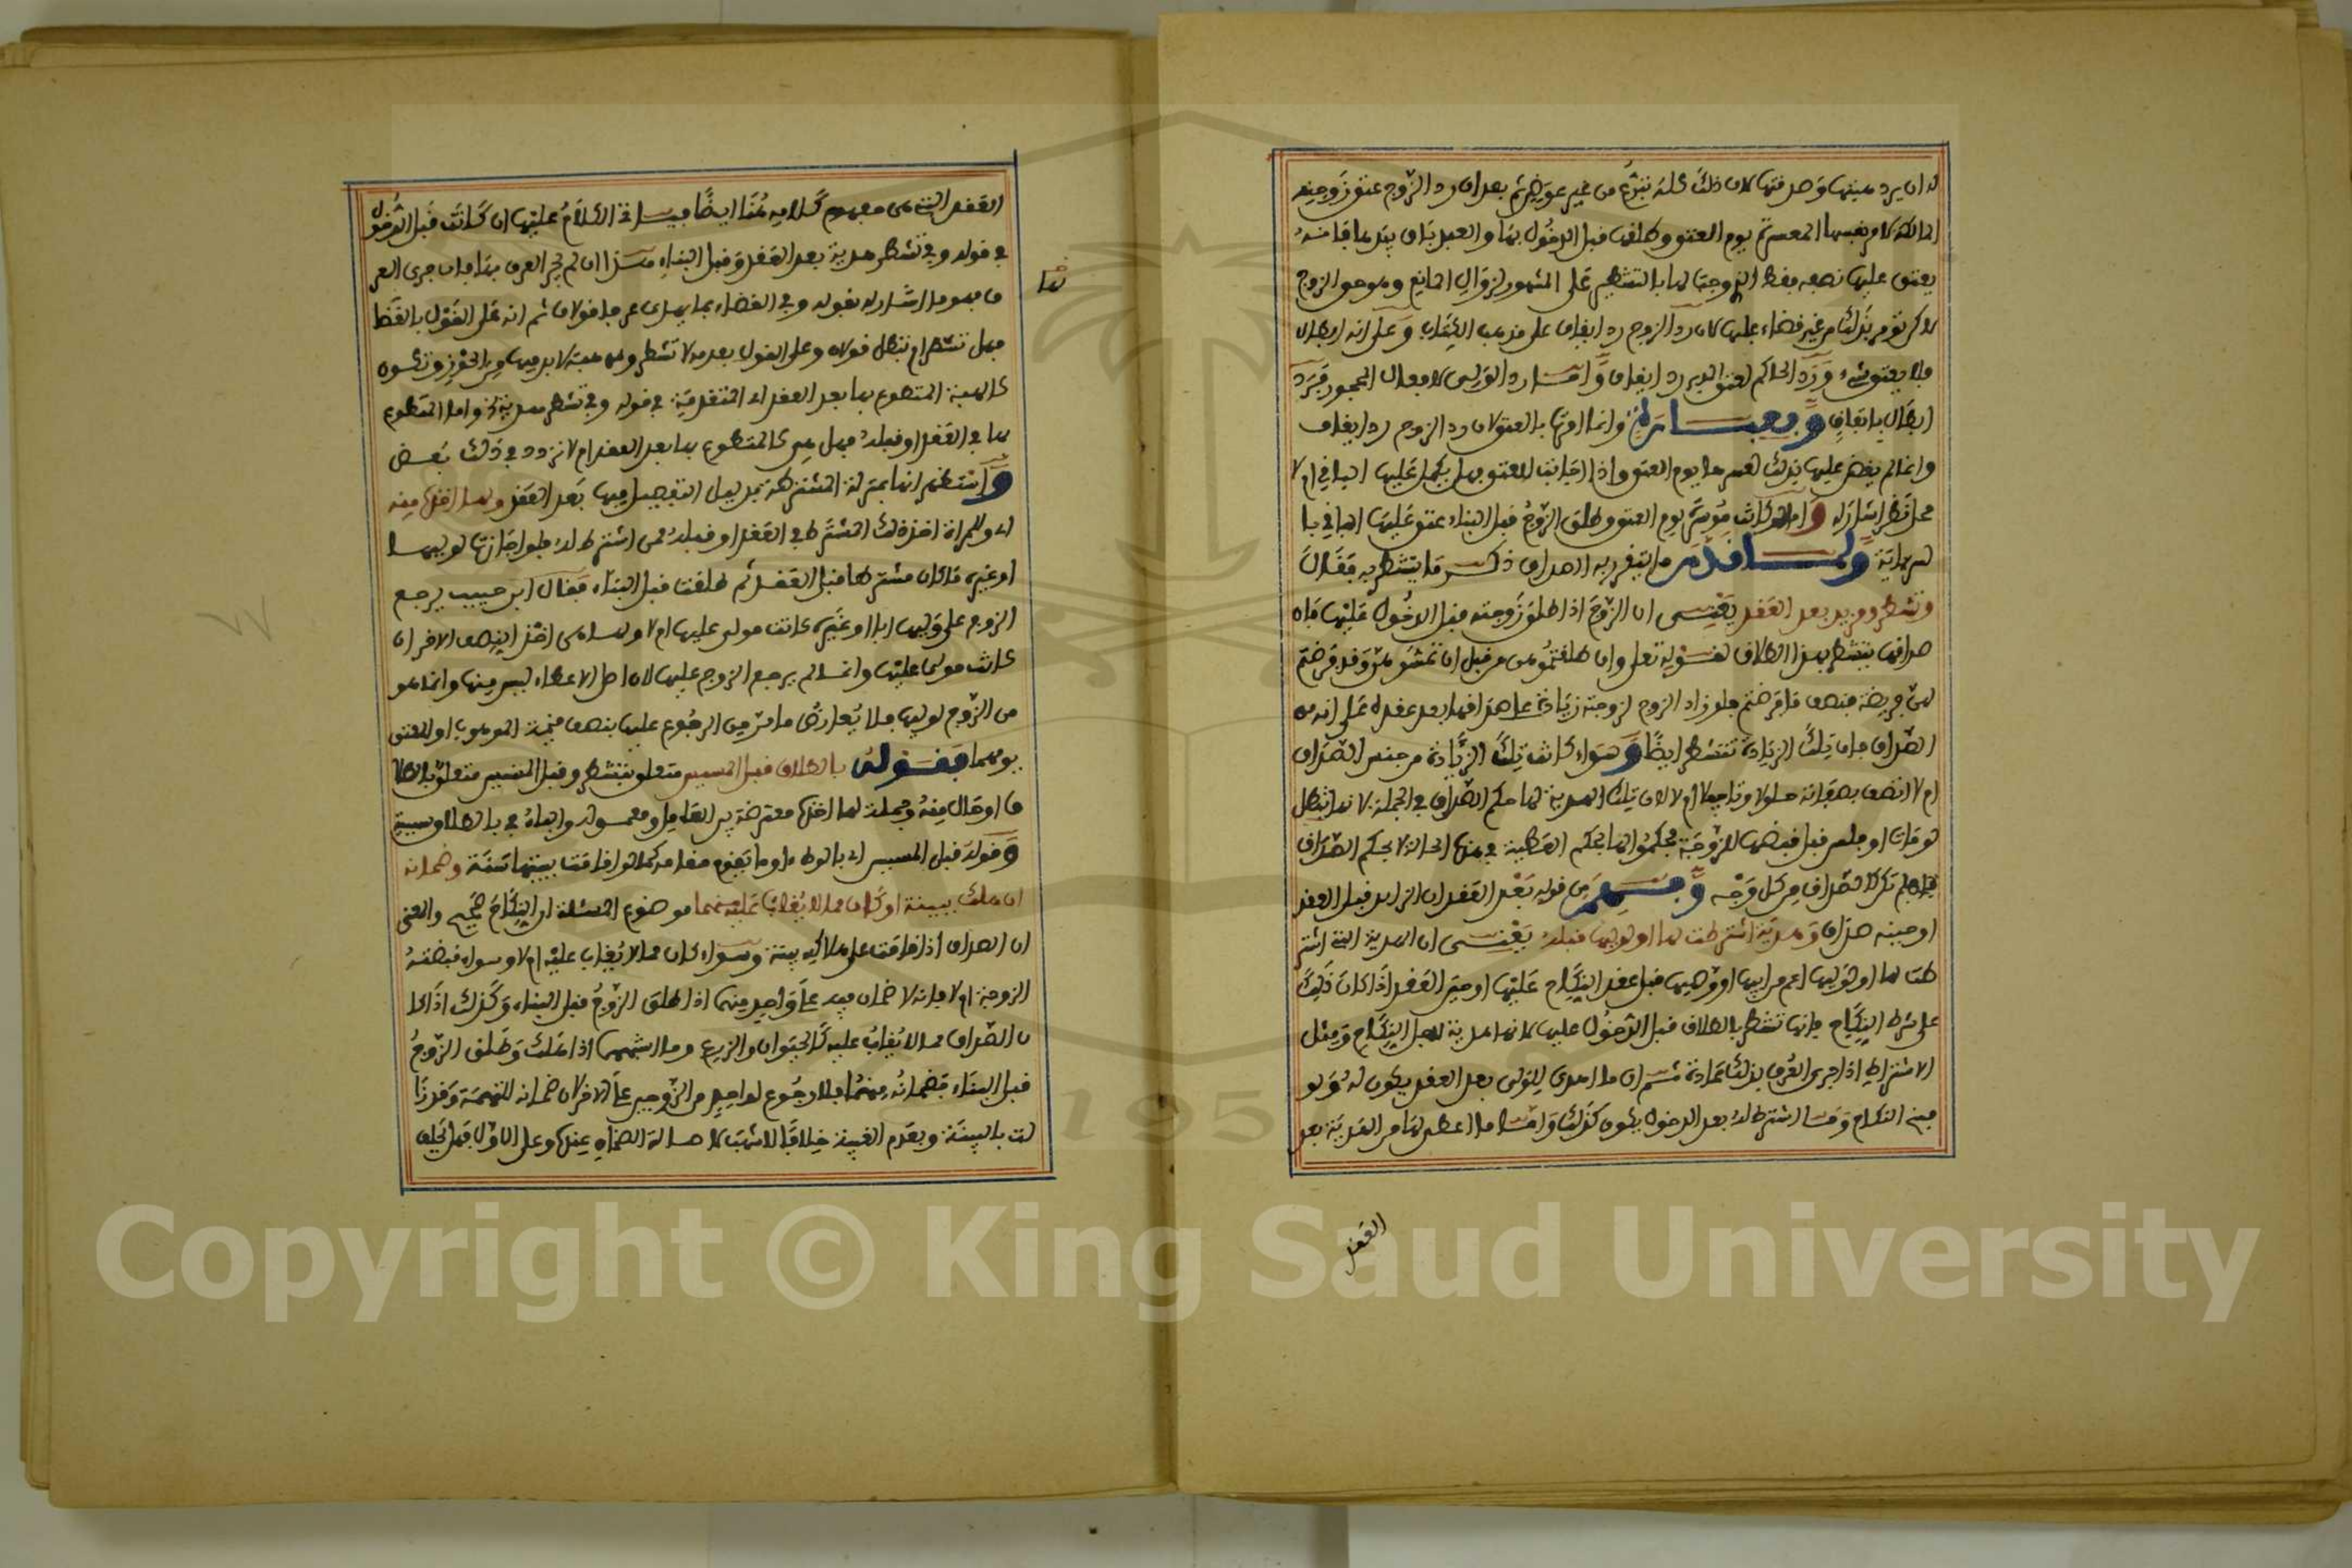 له ان يرد هبتها وصدقتها لان ذلك كله تبرع من غير عوض ثم بعد ان رد الزوج عتق زوجته
المالكة لامر نفسها المعسرة يوم العتق وطلقها قبل الدخول بها والعبد باق بيدها فانه
يعتق عليها نصفه فقط الزوجة لها بالتشطير على المشهور لزوال المانع وهو حق الزوج
لاكن تومر بذلك من غير قضاء عليها لان رد الزوج رد ايقاف على مذهب الكتاب وعلى انه ابطال
فلا يعتق شيء ورد الحاكم لعتق المدير رد ايقاف واما رد الولي لافعال المحجور فرد
ابطال باتفاق وبعبارة وانما امرتها بالعتق لان رد الزوج رد ايقاف
وانما لم يقض عليها بذلك لعسرها يوم العتق واذا اجابت للعتق فهل يكمل عليها الباقي ام لا
محل نظر اشار له وامالو كانت موسرة يوم العتق وطلق الزوج قبل البناء عتق عليها الباقي با
لسراية ولما قدم ما يتقرر به الصداق ذكر ما يتشطر به فقال
وتشطر ومزيد بعد العقد يعني ان الزوج اذا طلق زوجته قبل الدخول عليها فان
صداقها يتشطر بهذا الطلاق لقوله تعلى وان طلقتموهن من قبل ان تمسوهن وقد فرضتم
لهن فريضة فنصف ما فرضتم فلو زاد الزوج لزوجته زيادة على صداقها بعد عقده على انه من
الصداق فان تلك الزيادة تتشطر ايضا وسواء كانت تلك الزيادة من جنس الصداق
ام لا اتصف بصفاته حلولا وتاجيلا ام لا لان تلك الهدية لها حكم الصداق في الجملة لانها تبطل
لو مات او فلس قبل قبضها الزوجة فحكموا لها بحكم العطية في هذه الحالة لا بحكم الصداق
فلهاذا لم تكن كالصداق من كل وجه وفهم من قوله بعد العقد ان الزايد قبل العقد
او حينه صداق وهدية اشترطت لها او لوليها قبله يعني ان الهدية التي اشتر
طت لها او لوليها اعم من ابيها او وصيها قبل عقد النكاح عليها او حين العقد اذا كان ذلك
على شرط النكاح فانها تتشطر بالطلاق قبل الدخول عليها لانها هدية لاجل النكاح ومثل
الاشتراط اذا جرى العرف بذلك عادة ثم ان ما اهدى للولي بعد العقد يكون له ولو
فسخ النكاح وما اشترط له بعد الدخول يكون كذلك واما ما اعطى لها من الهدية بعد
العقد
العقد التي هي مفهوم كلامه هنا ايضا فيساق الكلام عليها ان كانت قبل الدخول
في قوله وفي تشطر هدية بعد العقد وقبل البناء هذا ان لم يجر العرف بها فان جرى العر
ف فهو ما اشار له بقوله وفي القضاء بما يهدى عرفا قولان ثم انه على القول بالقضا
فهل تتشطر ام تبطل قولان وعلى القول بعدمه لا تشطر وهي هبة لا بد فيها من الحوز وتكون
كالهبة المتطوع بها بعد العقد اي المتقدمة في قوله وفي تشطر هدية الخ واما المتطوع
بها في العقد او قبله فهل هي كالمتطوع بها بعد العقد ام لا تردد في ذلك بعض
واستظهر انها بمنزلة المشترطة بدليل التفصيل فيها بعد العقد ولها اخذه منه
اي وللمراة اخذ ذلك المشترط في العقد او قبله ممن اشترط له فلو اجازتها لوليها
او غيره ما كان مشترطا قبل العقد ثم طلقت قبل البناء فقال ابن حبيب يرجع
الزوج على وليها ابا او غيره كانت مولى عليها ام لا ولها هي اخذ النصف الاخر ان
كانت مولى عليها وانما لم يرجع الزوج عليها لان اصل الاعطاء ليس منها وانما هو
من الزوج لوليها فلا يعارض ما مر من الرجوع عليها بنصف قيمة الموهوب او المعتق
يومهما فقوله بالطلاق قبل المسيس متعلق بتشطر وقبل المسيس متعلق بالطلا
ق او حال منه وجملة لها اخذه معترضة بين العامل ومعموله والباء في بالطلاق سببية
وقوله قبل المسيس اي بالوطء او ما يقوم مقامه كما لو اقامت ببيتها سنة وضمانه
ان هلك ببينة او كان مما لا يغاب عليه منهما موضوع المسئلة ان النكاح صحيح والمعنى
ان الصداق اذا قامت على هلاكه بينة وسواء كان مما لا يغاب عليه ام لا وسواء قبضته
الزوجة ام لا فانه لا ضمان فيه على واحد منهما اذا طلق الزوج قبل البناء وكذلك اذا كا
ن الصداق مما لا يغاب عليه كالحيوان والزرع وما اشبههما اذا هلك وطلق الزوج
قبل البناء فضمانه منهما فلا رجوع لواحد من الزوجين على الاخر لان ضمانه للتهمة وقد زا
لت بالبينة وبعدم الغيبة خلافا لاشهب لاصالة الضمان عنده وعلى الاول فما يحلف